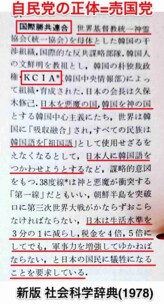 自民党の正体=売国党
国際勝共連合 世界基督教統一神霊
協会(統一協会)を母体とした韓国の手
先組織、国際的な反共謀略部隊。韓国人
の文鮮明を教祖とし、韓国の朴独裁政権
KCIA*(韓国中央情報部)によっ
て組織・育成された。日本の会長は久保
木修己。日本を悪魔の国、韓国を神の国
とする韓国中心主義たち、世界は韓
国に「吸収融合」され、すべての民族は
韓国語を「祖国語」として使用せざるを
えなくなるとして、日本人に韓国語を
つかわせようとするなど、謀略的意図
をもつ。38度線*は神と悪魔が衝突する
「第一線」だともいい、朝鮮半島を突破
口に第三次世界大戦がかならずおこら
なければならない、日本は生活水準を
3分の1に減らし、税金を4倍、5倍に
してでも、軍事力を増強してゆかねば
ならない、と日本の国民に犠牲になる
ことを要求している。
新版 社会科学辞典(1978)